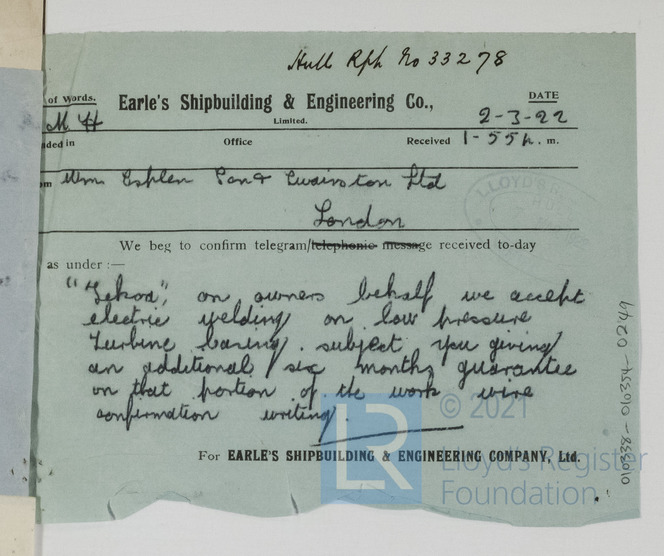 Hull Rph No 33278
of Words.
Earle's Shipbuilding & Engineering Co.,
Limited.
DATE
M H
2-3-22
ded in
Office
Received 1-55 p. m.
om Wm Esplen Son & Swainston Ltd
London
We beg to confirm telegram/telephonic message received to-day
as under :—
" on owners behalf we accept
electric welding on low pressure
turbine casing. subject you giving
an additional six months guarantee
on that portion of the work wire
confirmation writing.
For EARLE'S SHIPBUILDING & ENGINEERING COMPANY, Ltd.
LLOYD'S
010338-010354-0249
LR
© 2021
Lloyd's Register
Foundation